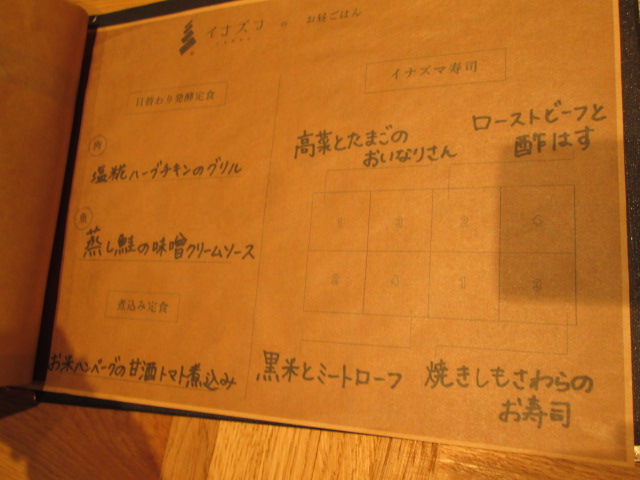 イナズマ の お昼ごはん
日替わり発酵定食
肉
塩糀ハーブチキンのグリル
魚
蒸し鮭の味噌クリームソース
煮込み定食
お米ハンバーグの甘酒トマト煮込み
イナズマ寿司
高菜とたまごの
おいなりさん
ローストビーフと
酢はす
黒米とミートローフ
焼きしもさわらの
お寿司